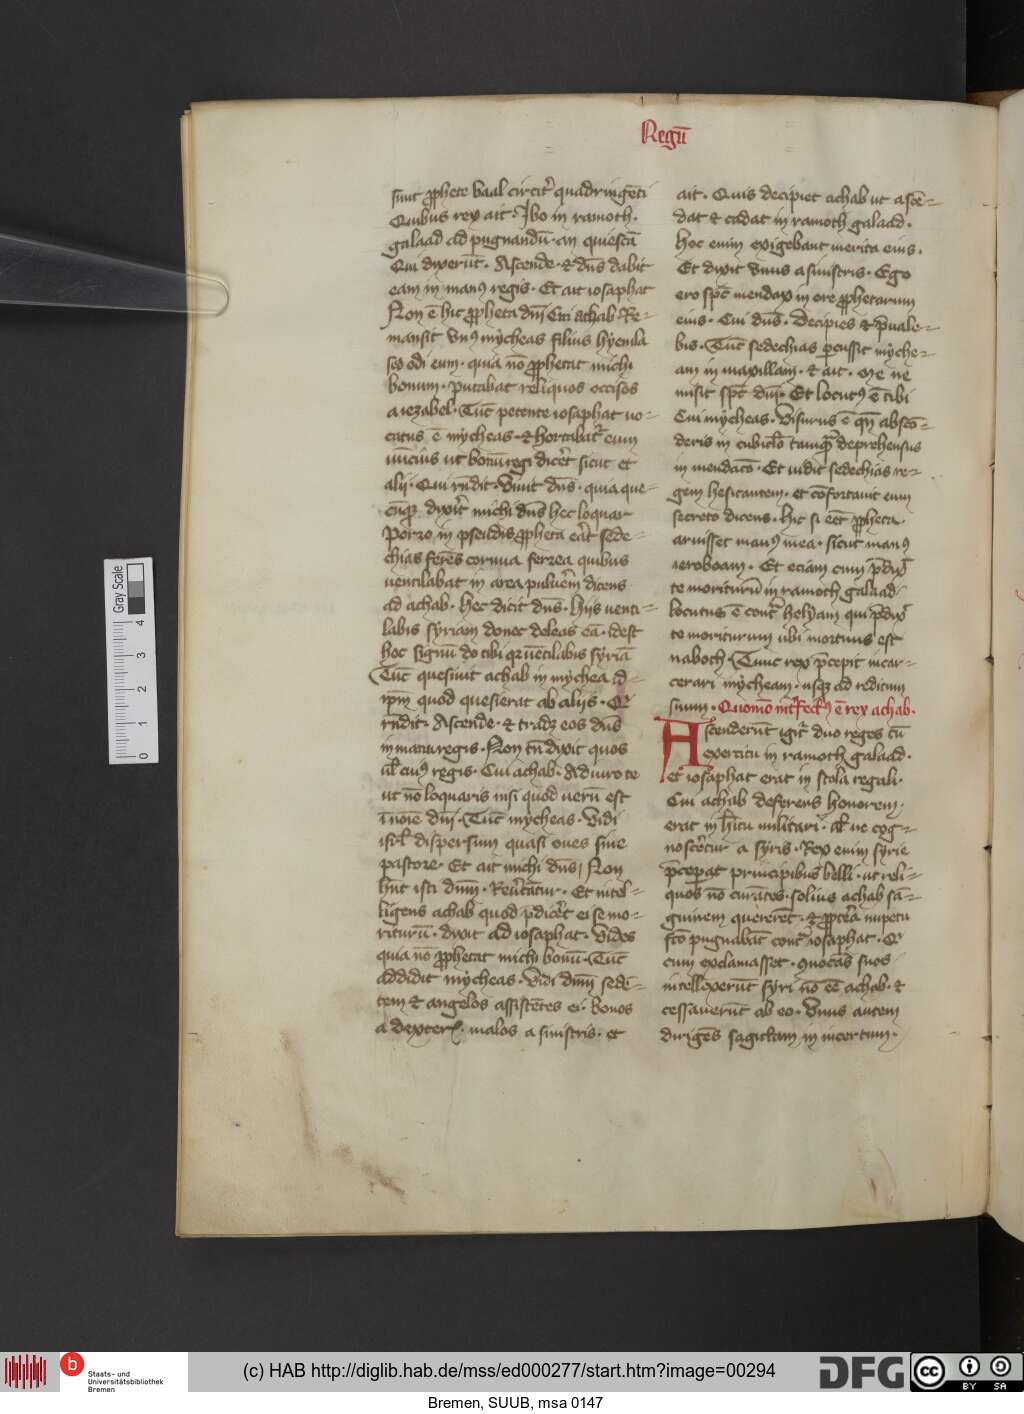 Regū
sunt ꝓphete baal circit̾ quadringēti
Quibus rex ait· Ibo in ramoth·
galaad ad pugnandū· an quiescā
Qui dixerūt· Ascende· ⁊ dn̄s dabit
eam in manꝰ regis· Et ait iosaphat
Non ē hic ꝓpheta dn̄i Cui achab Re-
mansit vnꝰ mẏcheas filius hyemla
sed odi eum· quia nō ꝓphetat michi
bonum· putabat reliquos occisos
a iezabel· Tūc petente iosaphat uo-
catus ē mẏcheas· ⁊ hortabat᷑ eum
nūcius ut bonū regi dicet̾ sicut et
alij· Qui rn̄dit· viuit dn̄s· quia que-
cūqꝫ dixit̾ michi dn̄s hec loquar
Porro in pseudis ꝓpheta erāt sede-
chias ferēs cornua ferrea quibus
uentilabat in area puluer̄m dicens
ad achab· hec dicit dn̄s· hijs uenti-
labis syriam donec deleas eā· idest
hoc signū do tibi qꝛ uētilabis syriā
Tūc quesiuit achab in mẏchea id-
ip̄m quod quesierat ab alijs· Et
rn̄dit· Ascende· ⁊ tradꝫ eos dn̄s
in manu regis· Non tn̄ dixit quos
ul̄ cuiꝰ regis· Cui achab· Adiuro te
ut nō loquaris nisi quod uerū est
ī noīe dn̄i· Tūc mẏcheas· vidi
isrl̄ dispersum quasi oues sine
pastore· Et ait michi dn̄s Non
hn̄t isti dn̄m· Reuertātur· Et intel-
ligens achab quod p̄dicet̾ ei se mo-
riturū· dixit ad iosaphat· vides
quia nō ꝓphetat michi bonū· Tūc
addidit mẏcheas· vidi dn̄m sedē-
tem ⁊ angelos assistētes ei· bonos
a dexter̄· malos a sinistris· et
ait· Quis decipiet achab ut ascē-
dat ⁊ cadat in ramoth galaad·
hoc enim exigebant merita eius·
Et dixit vnus a sinistris· Ego
ero sp̄c mendax in ore ꝓphetarum
eius· Cui dn̄s· Decipies ⁊ p̄uale-
bis· Tūc sedechias ꝑcussit mẏche-
am in maxillam· ⁊ ait· Me ne
misit sp̄c dn̄i· Et locutꝰ ē tibi
Cui mẏcheas· Visurus ē qn̄ abscō-
deris in cubicl̄o tamqꝫ dep̄rehensus
in mendacō· Et uidit sedechias re-
gem hesitantem· et cōfortauit eum
secreto dicens· hic si eēt ꝓpheta·
aruisset manꝰ mea· sicut manꝰ
ieroboam· Et eciam cum p̄dix̄
te moriturū in ramoth galaad
locutus ē contᷓ helyam qui p̄dix̄
te moriturum ubi mortuus est
naboth· Tunc rex p̄cepit incar-
cerari mẏcheam· usqꝫ ad reditum
suum· Quomō int̾fectꝰ ē rex achab·
Ascenderūt igit᷑ duo reges cū
exercitu in ramoth galaad·
et iosaphat erat in stola regali·
Cui achab deferens honorem·
erat in hītu militari· ul̄ ne cog-
nosceretur a syris· Rex enim syrie
p̄ceperat principibus belli· ut reli-
quos nō curātes· solius achab sā-
guinem quererēt· ⁊ ꝓpterea impetu
fc̄o pugnabāt contᷓ iosaphat· Qui
cum exclamasset· inuocās suos
intellexerūt syri nō eē achab· ⁊
cessauerūt ab eo· vnus autem
dirigēs sagictam in incertum·
Gray Scale
0 1 2 3 4
b
Staats- und
Universitätsbibliothek
Bremen
(c) HAB http://diglib.hab.de/mss/ed000277/start.htm?image=00294
DFG
cc BY SA
Bremen, SUUB, msa 0147